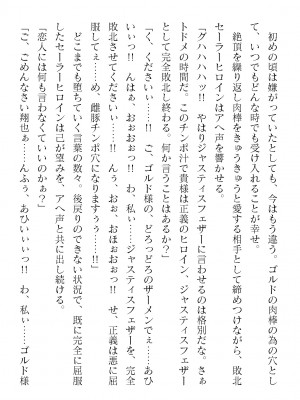 初めの頃は嫌がっていたとしても、今はもう違う。ゴルドの肉棒の為の穴とし
て、いつでもどんな時でも受け入れることが幸せ。
絶頂を繰り返し肉棒をきゅうきゅうと愛する相手として締めつけながら、敗北
セーラーヒロインはアヘ声を響かせる。
「グハハハハッ!! やはりジャスティスフェザーに言わせるのは格別だな。さぁ
トドメの時間だ。このチンポ汁で貴様は正義のヒロイン、ジャスティスフェザー
として完全敗北し終わる。何か言うことはあるか？」
「く、くださいぃ…っ!! ご、ゴルド様の、どろっどろのザーメンでぇぇ…あひ
いぃっ!! んはぁ、おぉぉっ!! わ、私ぃ……ジャスティスフェザーを、完全
敗北させてくださいぃ……っ!! おぉ、おほぉおぉっ!! せ、正義は悪に屈
服してぇ……め、雌豚チンポ穴になりますぅぅ……っ!!」
どこまでも堕ちていく言葉の数々。後戻りのできない状況で、既に完全に屈服
したセーラーヒロインは己が望みを、アヘ声と共に出し続ける。
「恋人には何も言わなくていいのかぁ？」
「ご、ごめんなさい翔也ぁ…んふぅ、あひぃいっ!! わ、私ぃ……ゴルド様